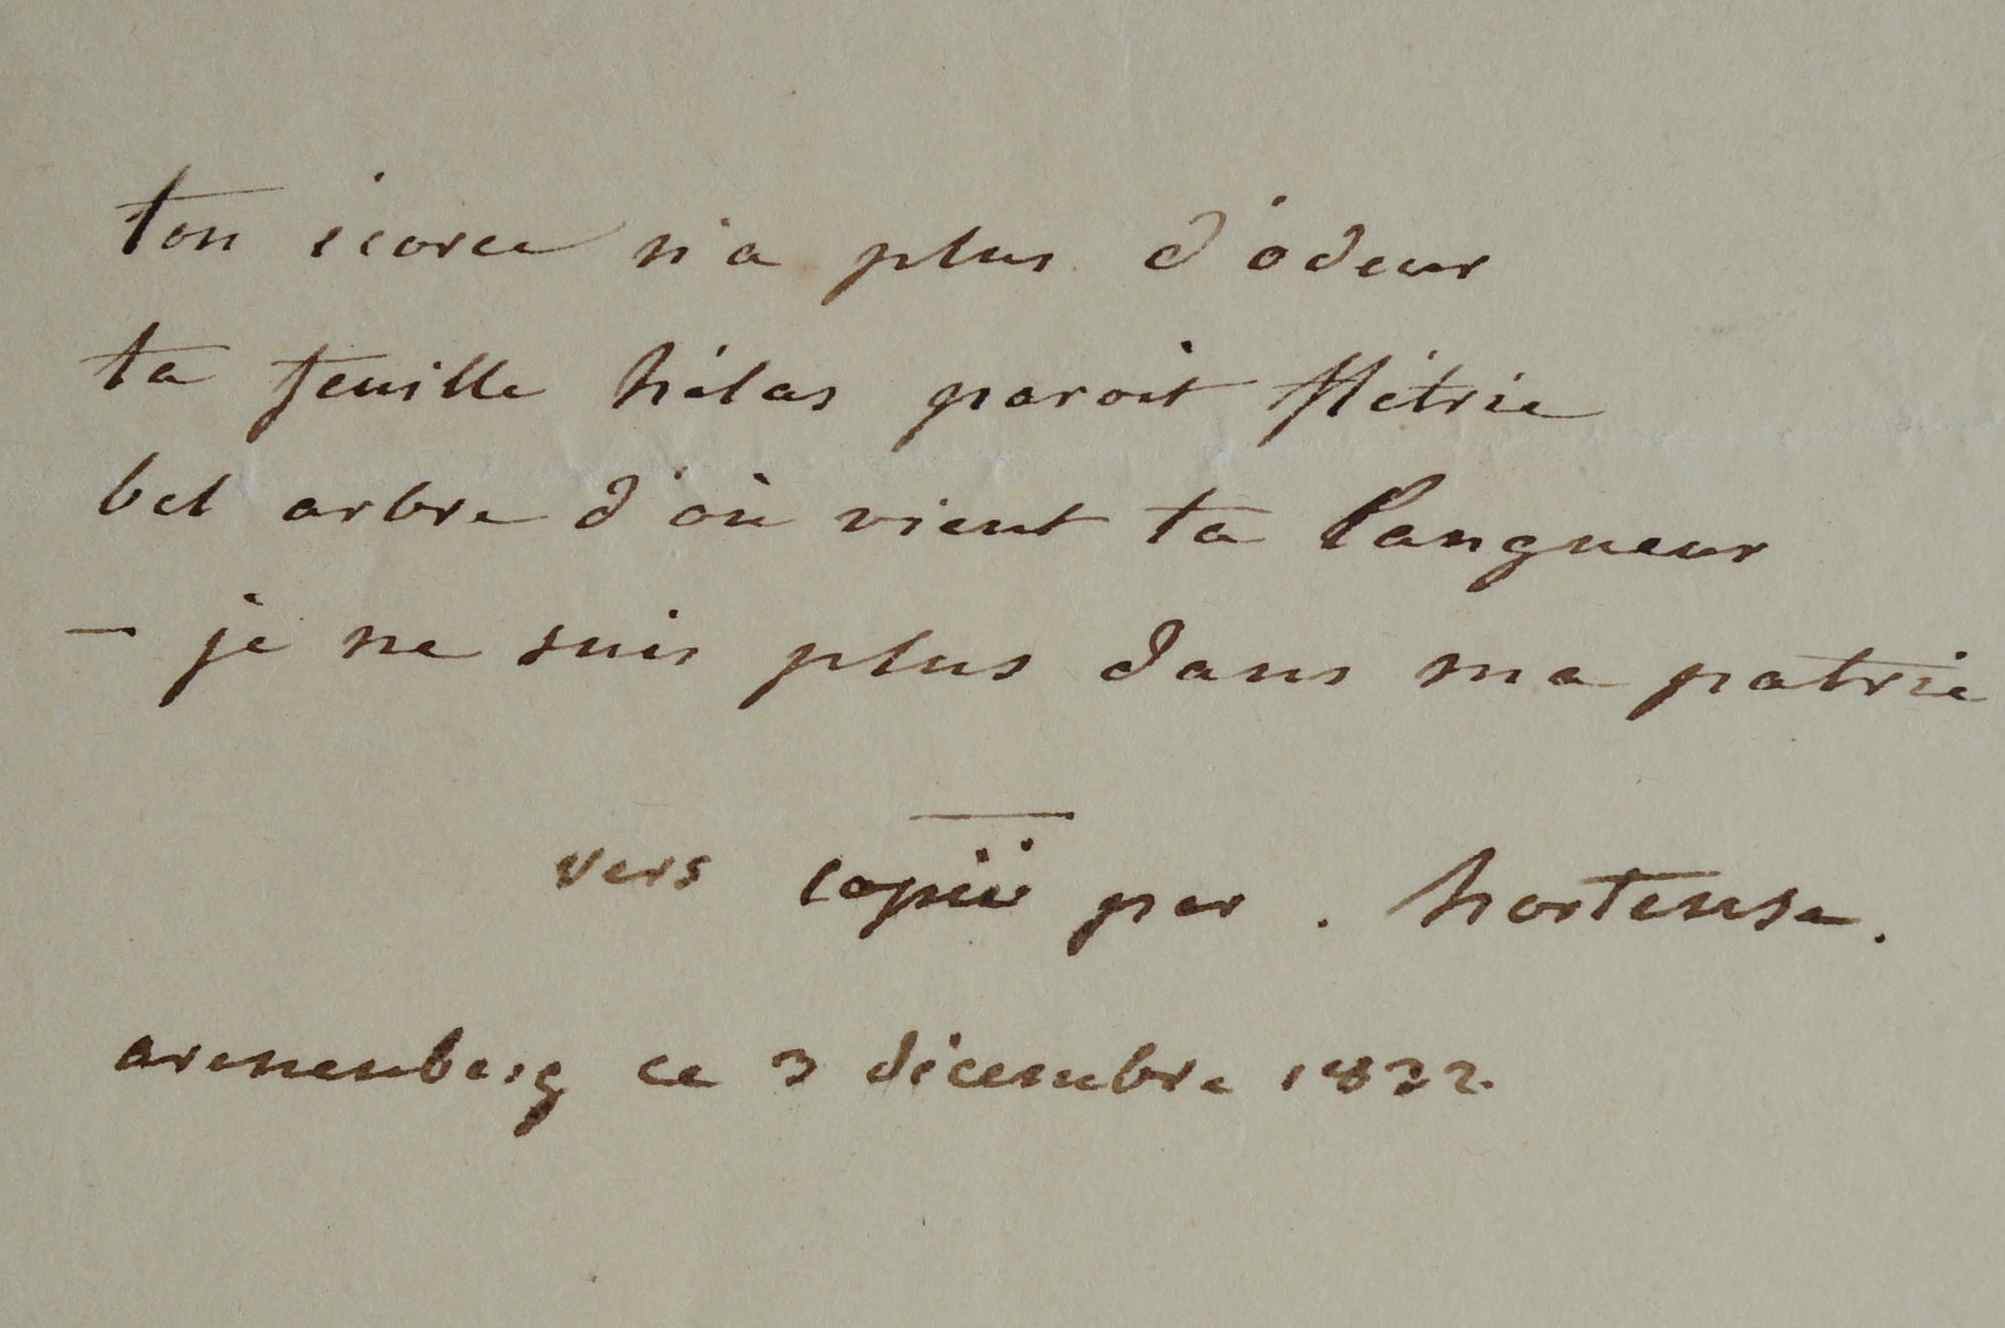 ton écorce n'a plus d'odeur
ta feuille hélas paroit flétrie
bel arbre d'où vient ta langueur
— je ne suis plus dans ma patrie
vers copiés par . hortense .
arenenberg ce 3 décembre 1832.